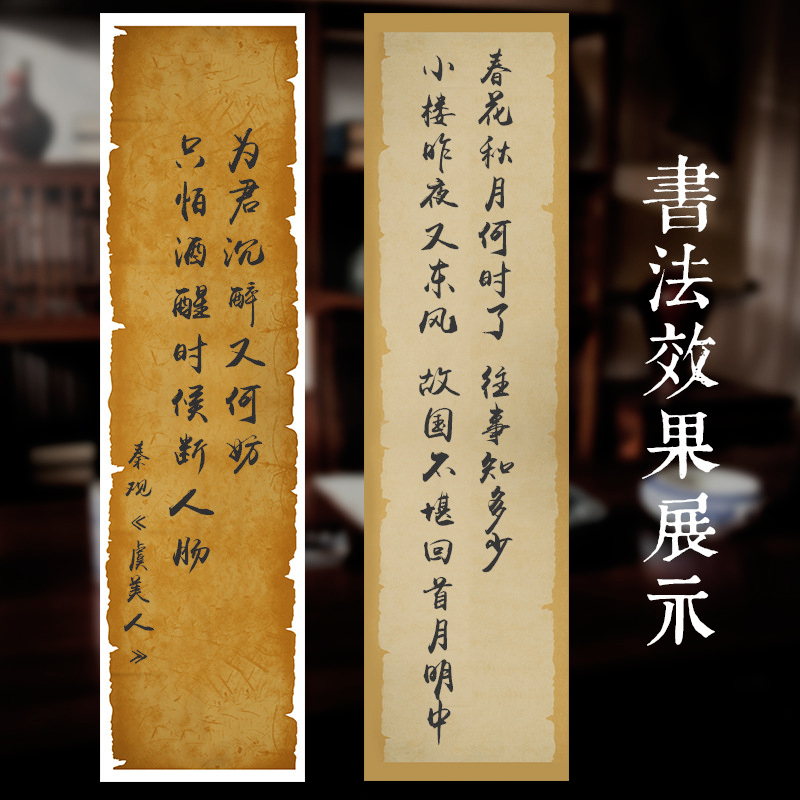 書法效果展示
春花秋月何时了 往事知多少
小楼昨夜又东风 故国不堪回首月明中
为君沉醉又何妨
只怕酒醒时候断人肠
秦观《虞美人》